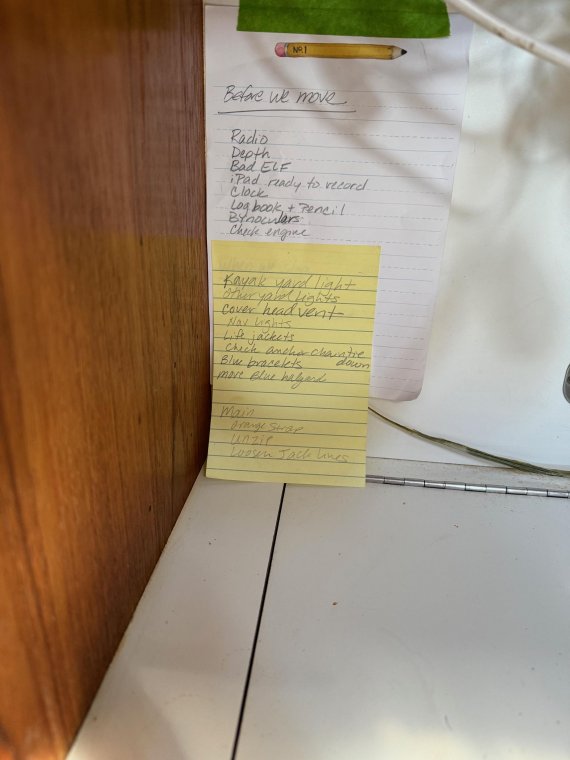 NO.1
Before we move
Radio
Depth
Bad ELF
iPad ready to record
Clock
Logbook + Pencil
Bynoculars
Check engine
Kayak yard light
Other yard lights
Cover head vent
Nav lights
Life jackets
Check anchor chain tie
Blue bracelets down
move Blue halyard
Main
Orange Strap
Unzip
Loosen Jack lines